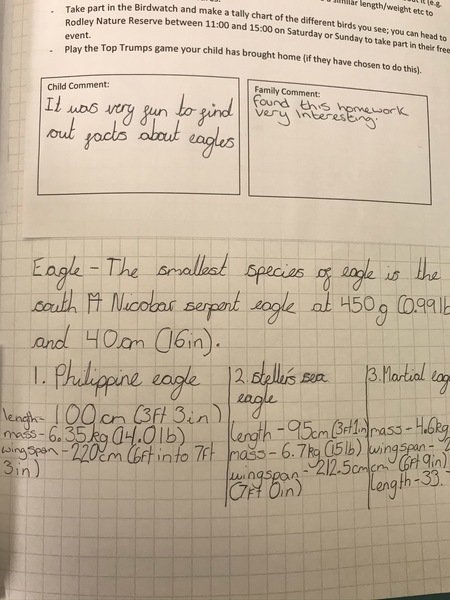 similar length/weight etc to
- Take part in the Birdwatch and make a tally chart of the different birds you see; you can head to
Rodley Nature Reserve between 11:00 and 15:00 on Saturday or Sunday to take part in their free
event.
- Play the Top Trumps game your child has brought home (if they have chosen to do this).
Child Comment:
It was very fun to find
out facts about eagles
Family Comment:
found this homework
very interesting.
Eagle - The smallest species of eagle is the
south Nicobar serpent eagle at 450g (0.99lb
and 40cm (16in).
1. Philippine eagle
length - 100cm (3ft 3in)
mass - 6.35kg (14.0lb)
wingspan - 220cm (6ft into 7ft
3in)
2. steller's sea
eagle
length - 95cm (3ft1in)
mass - 6.7kg (15lb)
wingspan - 212.5cm
(7ft 0in)
3. Martial eag
mass - 4.6kg
wingspan - 2
cm (6ft 9in)
length - 33.